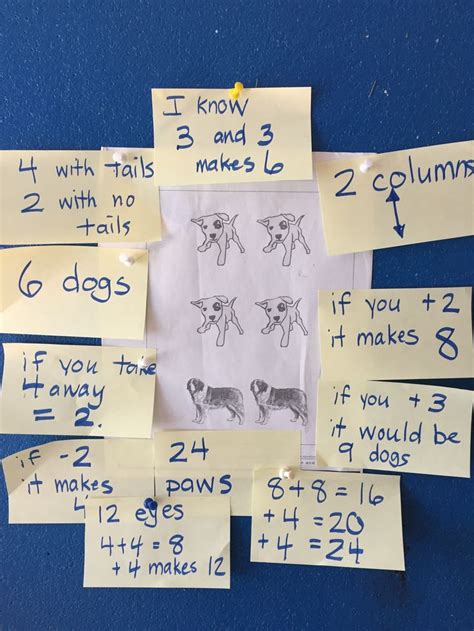 I know
3 and 3
makes 6
4 with tails
2 with no
tails
2 columns
6 dogs
if you +2
it makes
8
if you take
4 away
= 2.
if you +3
it would be
9 dogs
if -2
it makes
4
24
paws
8+8=16
+4=20
+4=24
12 eyes
4+4=8
+4 makes 12